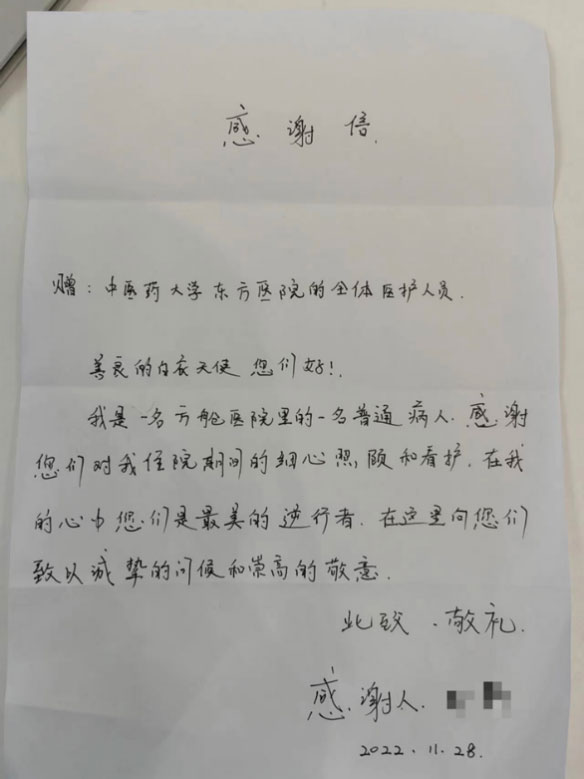 感谢信.
赠：中医药大学东方医院的全体医护人员.
善良的白衣天使 您们好！.
我是一名方舱医院里的一名普通病人.感谢
您们对我住院期间的细心照顾和看护.在我
的心中您们是最美的逆行者.在这里向您们
致以诚挚的问候和崇高的敬意.
此致.敬礼.
感谢人.
2022.11.28.